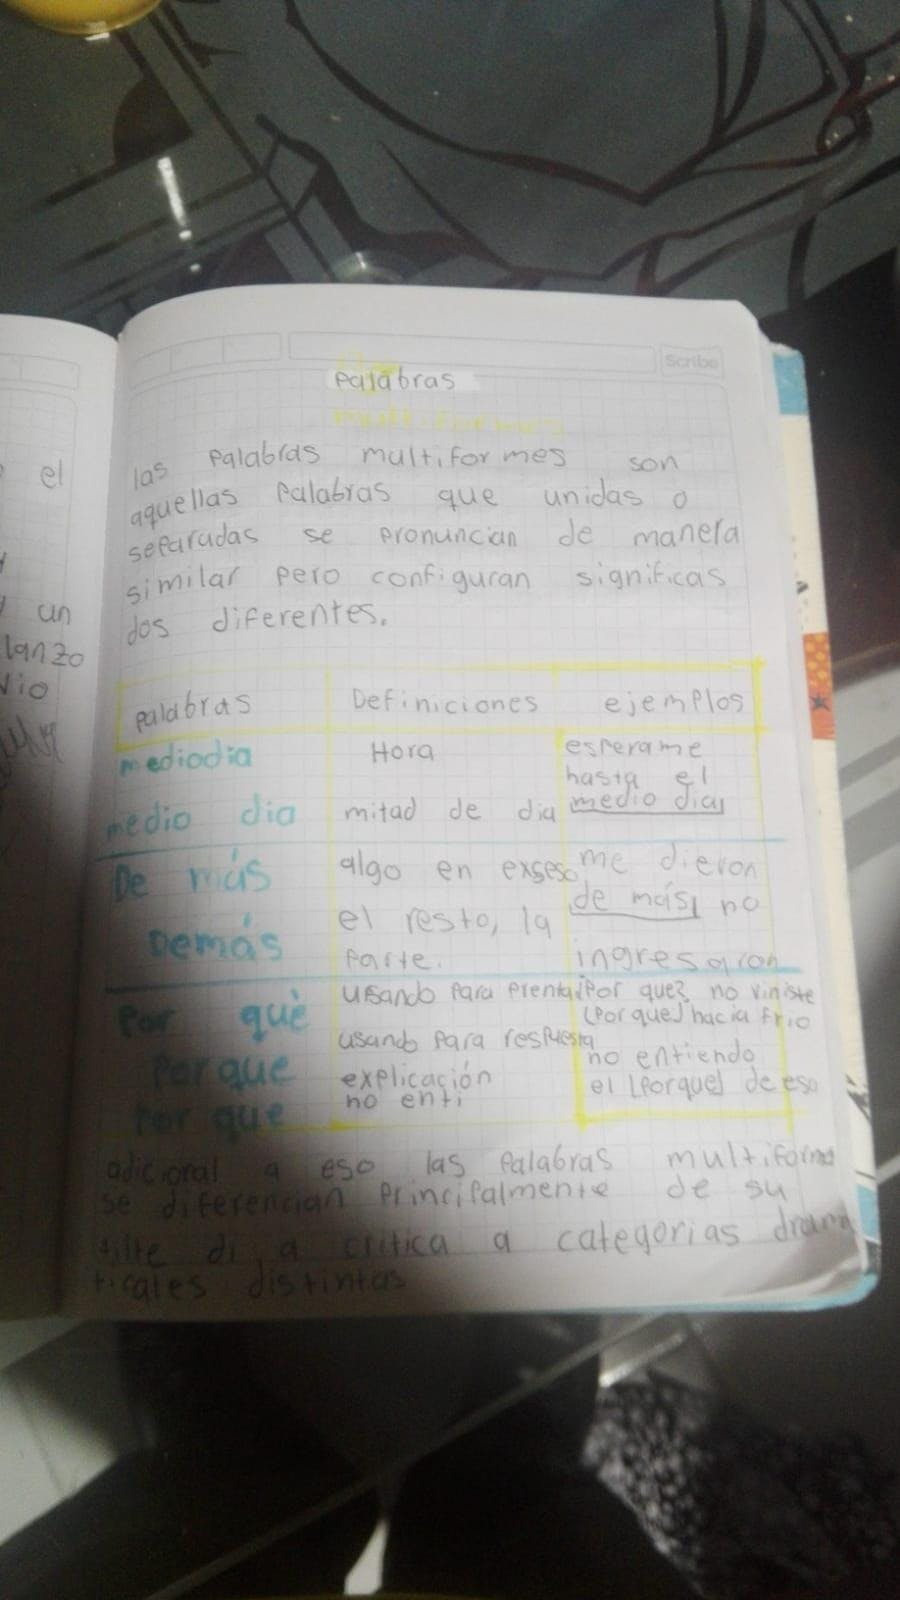 Scribe
Palabras
multiformes
las Palabras multiformes son
aquellas Palabras que unidas o
separadas se pronuncian de manera
similar pero configuran significas
dos diferentes.
Palabras Definiciones ejemplos
mediodia Hora esperame
hasta el
medio dia mitad de dia medio dia
De más algo en exseso me dieron
de más no
Demás el resto, la
parte. ingresaron
Por qué usando Para Por que? no viniste
usando Para respuesta (Porque) hacia frio
Porque explicación no entiendo
Por que no enti el (Porque) de eso
adicional a eso las Palabras multiforme
se diferencian Principalmente de su
critica a categorias
ticales distintas
el
un
lanzo
vio